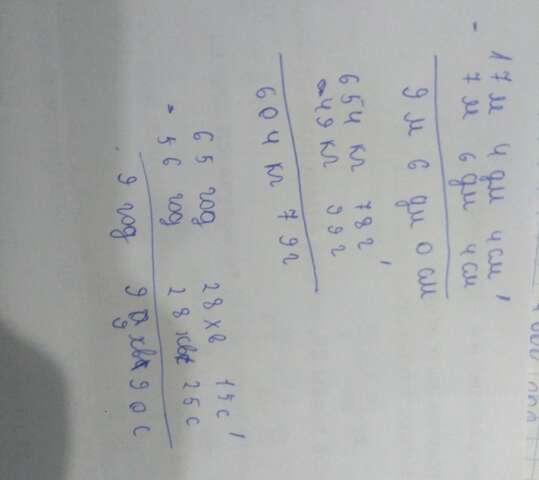 17м 4дм 4см,
- 7м 6дм 4см
9 м 6 дм 0 см
654 кг 78г,
- 49 кг 99г
604 кг 79г
65 год 28хв 15с,
- 56 год 28 хв 25с
9 год 9 9 хв 90с